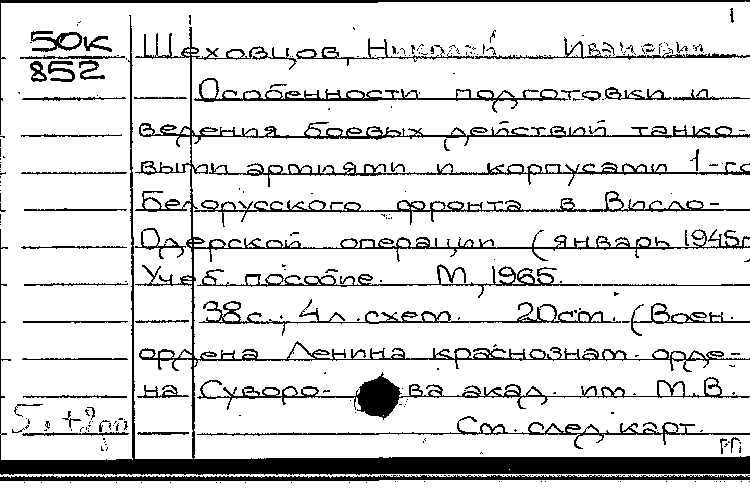 1
50К
852
Шеховцов, Николай Иванович
Особенности подготовки и
ведения боевых действий танко-
выми армиями и корпусами 1-го
Белорусского фронта в Висло-
Одерской операции (январь 1945г
Учеб. пособие. М., 1965.
38с.; 4л.схем. 20см. (Воен.
ордена Ленина краснознам. орде-
на Суворо- ва акад. им. М.В.
См. след. карт.
РП